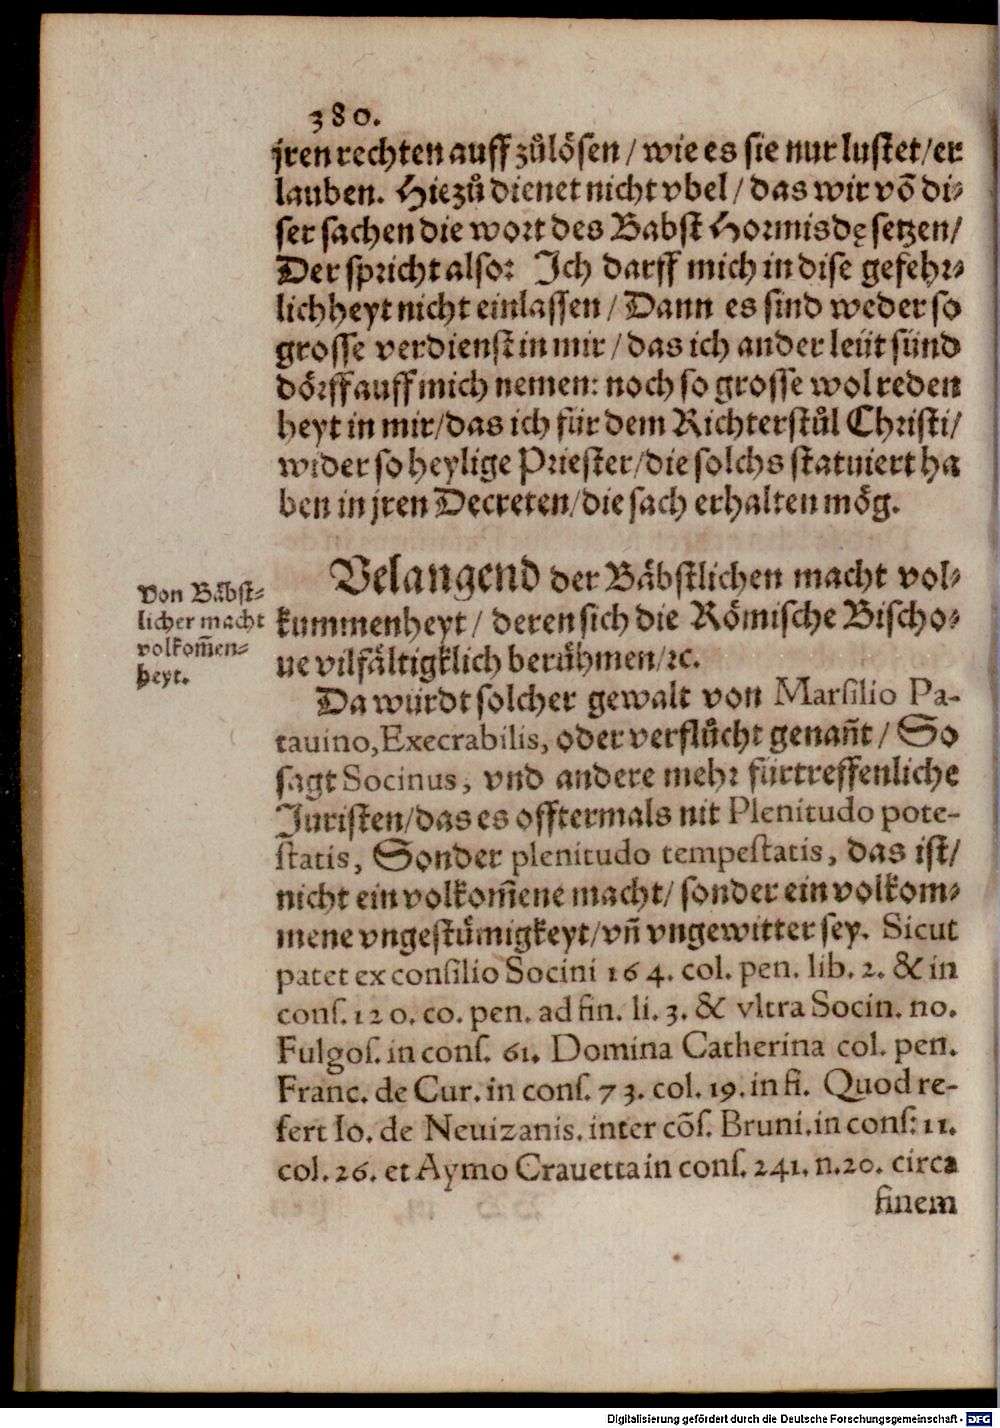 380.
jren rechten auff zůlösen / wie es sie nur lustet / er
lauben. Hiezů dienet nicht vbel / das wir võ di⸗
ser sachen die wort des Babst Hormisdę setzen /
Der spricht also: Ich darff mich in dise gefehr⸗
lichheyt nicht einlassen / Dann es sind weder so
grosse verdienst in mir / das ich ander leüt sünd
dörff auff mich nemen: noch so grosse wolreden
heyt in mir / das ich für dem Richterstůl Christi /
wider so heylige Priester / die solchs statuiert ha
ben in jren Decreten / die sach erhalten mög.
Von Bäbst⸗
licher macht
volkom̃en⸗
heyt.
Velangend der Bäbstlichen macht vol⸗
kummenheyt / deren sich die Römische Bischo⸗
ue vilfältigklich berühmen / ꝛc.
Da würdt solcher gewalt von Marsilio Pa-
tauino, Execrabilis, oder verflůcht genañt / So
sagt Socinus, vnd andere mehr fürtreffenliche
Juristen / das es offtermals nit Plenitudo pote-
statis, Sonder plenitudo tempestatis, das ist /
nicht ein volkom̃ene macht / sonder ein volkom⸗
mene vngestümigkeyt / vñ vngewitter sey. Sicut
patet ex consilio Socini 164. col. pen. lib. 2. & in
cons. 120. co. pen. ad fin. li. 3. & vltra Socin. no.
Fulgos. in cons. 61. Domina Catherina col. pen.
Franc. de Cur. in cons. 73. col. 19. in fi. Quod re-
fert Io. de Neuizanis. inter cõs. Bruni. in cons: 11.
col. 26. et Aymo Crauetta in cons. 241. n. 20. circa
finem
Digitalisierung gefördert durch die Deutsche Forschungsgemeinschaft - DFG